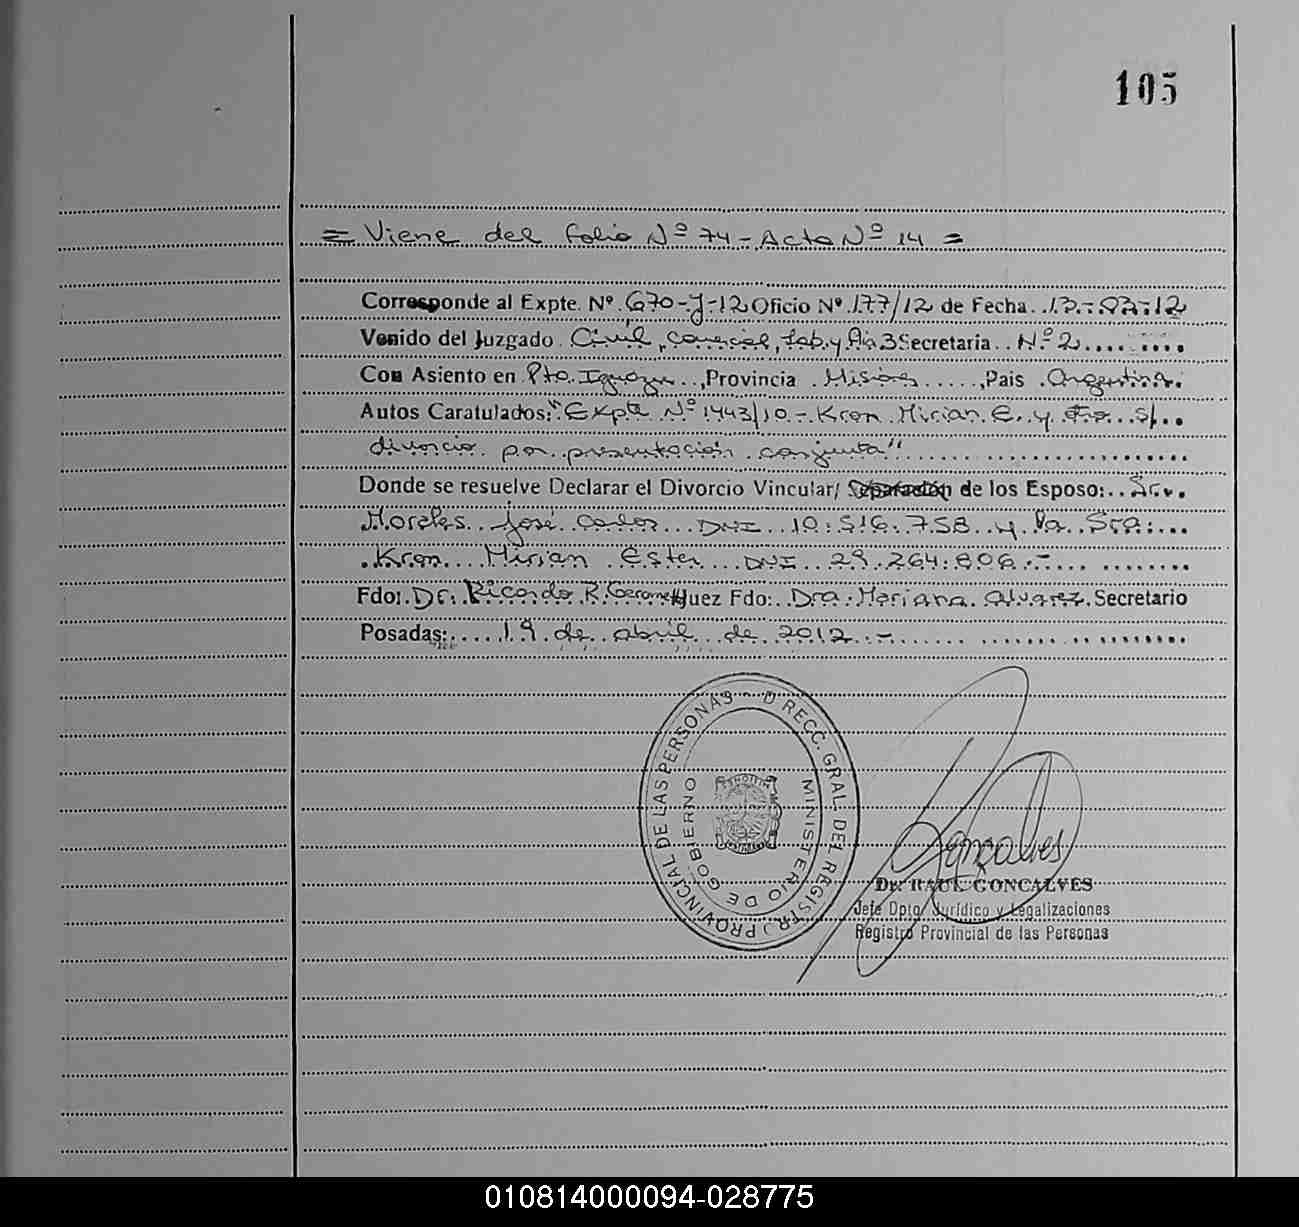 105
= Viene del folio Nº 74 - Acta Nº 14 =
Corresponde al Expte. Nº 670-J-12 Oficio Nº 177/12 de Fecha 13-03-12
Venido del Juzgado Civil, Comercial, Lab. y Flia 3 Secretaria Nº 2
Con Asiento en Pto. Iguazu, Provincia Misiones, Pais Argentina.
Autos Caratulados: "Expte Nº 1443/10 - Kron Mirian E. y otro s/
divorcio por presentación conjunta"
Donde se resuelve Declarar el Divorcio Vincular/ Separación de los Esposo: Sr.
Morales José Carlos DNI 10.516.758 y la Sra:
Kron Mirian Ester DNI 29.264.806.-
Fdo: Dr. Ricardo R. Juez Fdo: Dra. Mariana Alvarez Secretario
Posadas: 19 de abril de 2012.-
DIRECC. GRAL. DEL REGISTRO PROVINCIAL DE LAS PERSONAS
MINISTERIO DE GOBIERNO
Gonçalves
Dr. RAUL GONCALVES
Jefe Dpto. Jurídico y Legalizaciones
Registro Provincial de las Personas
010814000094-028775